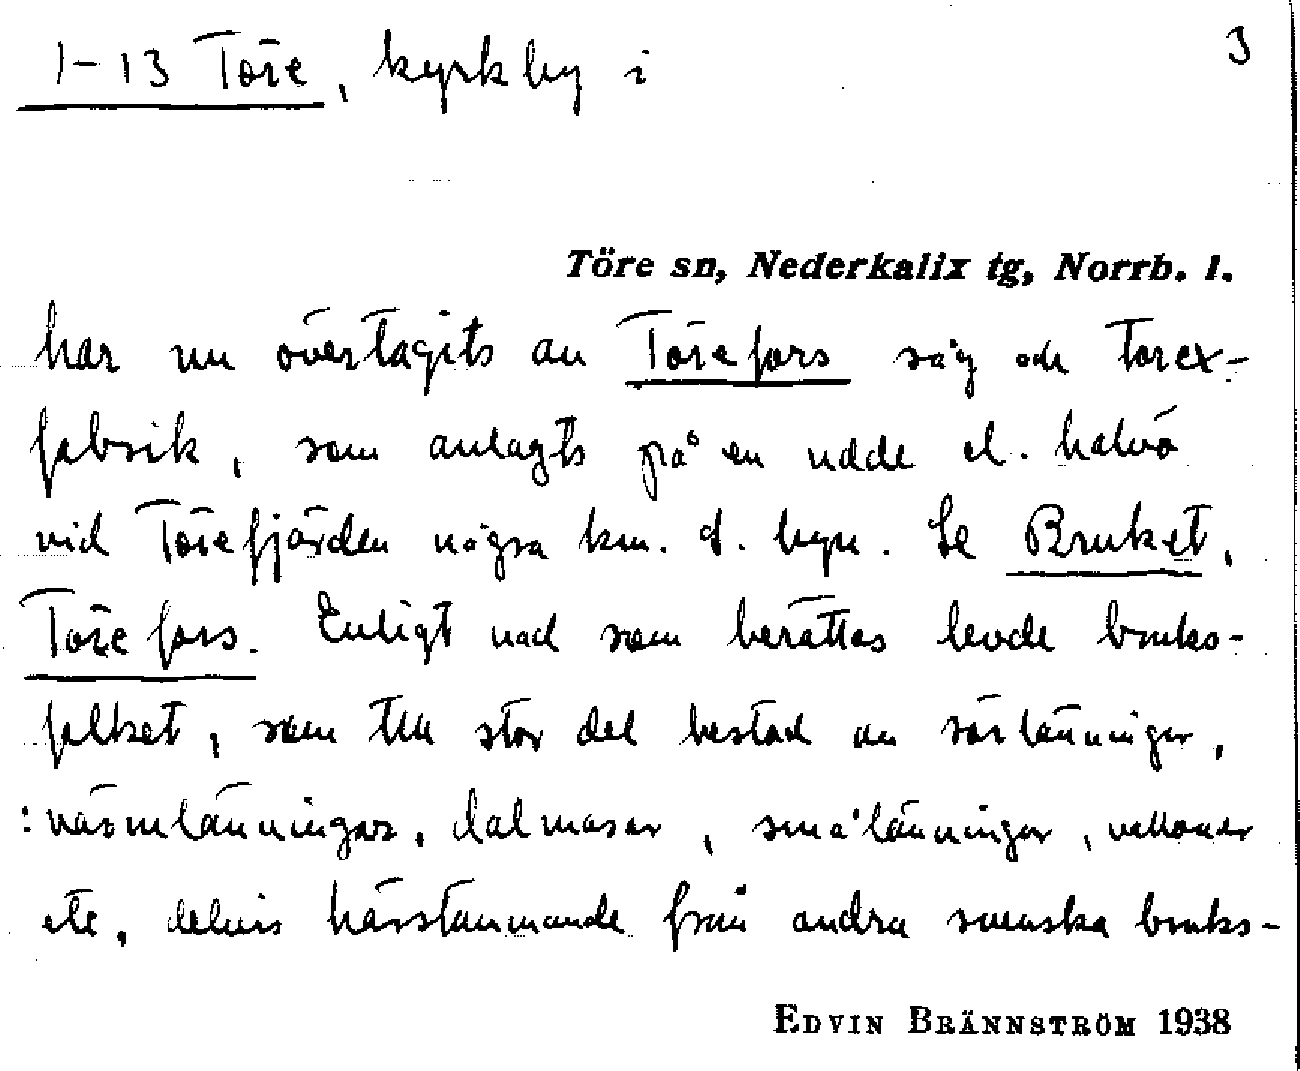 1-13 Töre, kyrkby i
3
Töre sn, Nederkalix tg, Norrb. l.
har nu övertagits av Törefors såg och torex-
fabrik, som anlagts på en udde el. halvö
vid Törefjärden några km. f. byn. Se Bruket,
Törefors. Enligt vad som berättas levde bruks-
folket, som till stor del bestod av sörlänningar,
: värmlänningar, dalmasar, smålänningar, valloner
etc, delvis härstammande från andra svenska bruks-
EDVIN BRÄNNSTRÖM 1938